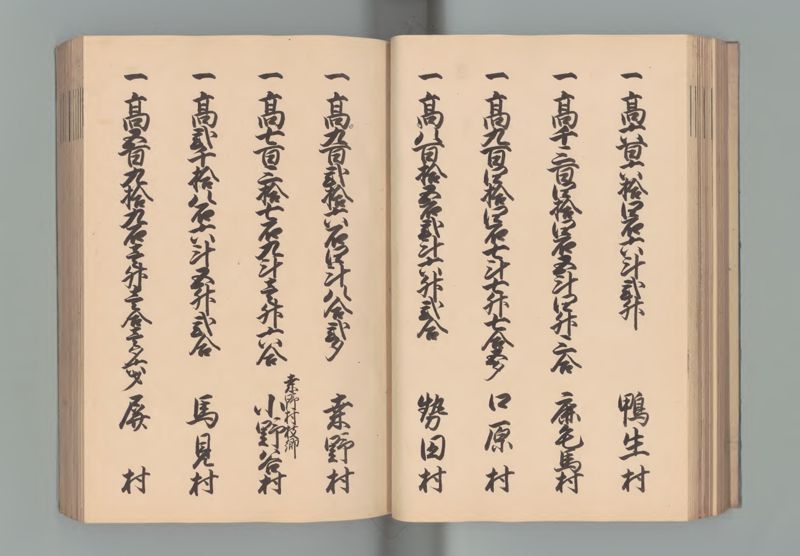 一 高六百六拾四石六斗弐升 鴨生村
一 高千三百四拾四石五斗四升三合 鹿毛馬村
一 高九百四拾四石七斗七升七合 口原村
一 高八百拾五石弐斗六升弐合 勢田村
一 高九百弐拾六石四斗八合弐夕 桑野村
桑野村枝郷
一 高七百三拾七石九斗壱升六合 小野谷村
一 高弐千拾八石六斗五升弐合 馬見村
一 高五百九拾九石壱升壱合 屏村